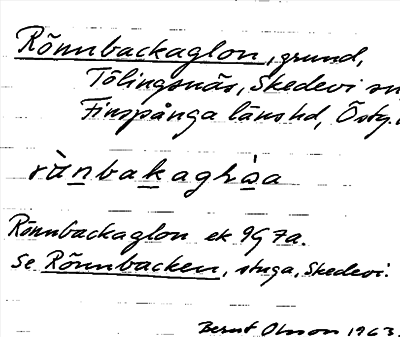 Rönnbackaglon, grund,
Tölingsnäs, Skedevi sn
Finspånga länshd, Östg.
rànbakaglòsa
Rönnbackaglon ek 9G7a.
Se Rönnbacken, stuga, Skedevi.
Bernt Olsson 1963.